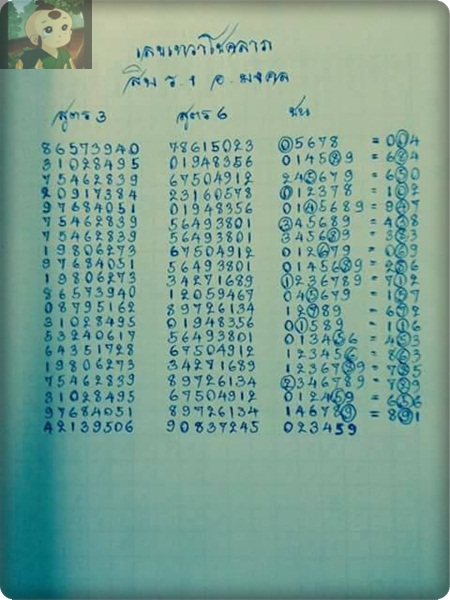 เลขเทวาโชคลาภ
สิบ ร. 1 อ. มงคล
สูตร 3 สูตร 6 ชน
86573940 78615023 05678 = 004
31028495 01948356 014589 = 684
75462839 67504912 245679 = 650
20917384 23160578 012378 = 102
97684051 01948356 0145689 = 847
75462839 56493801 345689 = 408
75462839 56493801 345689 = 383
19806273 67504912 012679 = 069
97684051 56493801 0145689 = 256
19806273 34271689 1236789 = 712
86573940 12059467 045679 = 157
08795162 89726134 12789 = 672
31028495 01948356 01589 = 116
53240617 56493801 013456 = 453
64351728 67504912 123456 = 863
19806273 34271689 1236789 = 785
75462839 89726134 2346789 = 729
31028495 67504912 012459 = 656
97684051 89726134 146789 = 891
42139506 90837245 023459